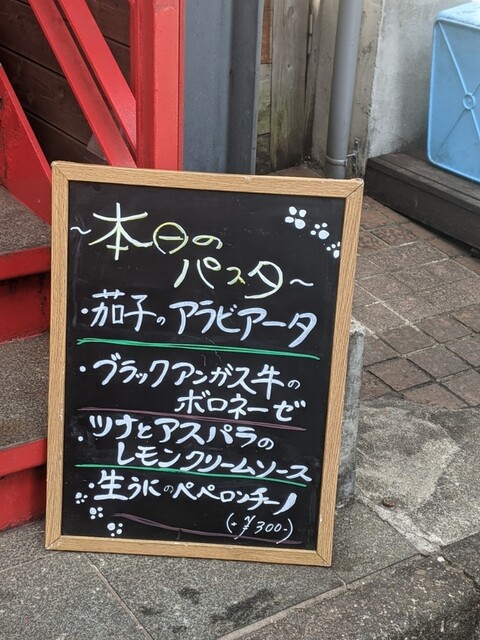 ～本日の
パスタ～
・茄子のアラビアータ
・ブラックアンガス牛の
ボロネーゼ
・ツナとアスパラの
レモンクリームソース
・生うにのペペロンチーノ
(+¥300-)